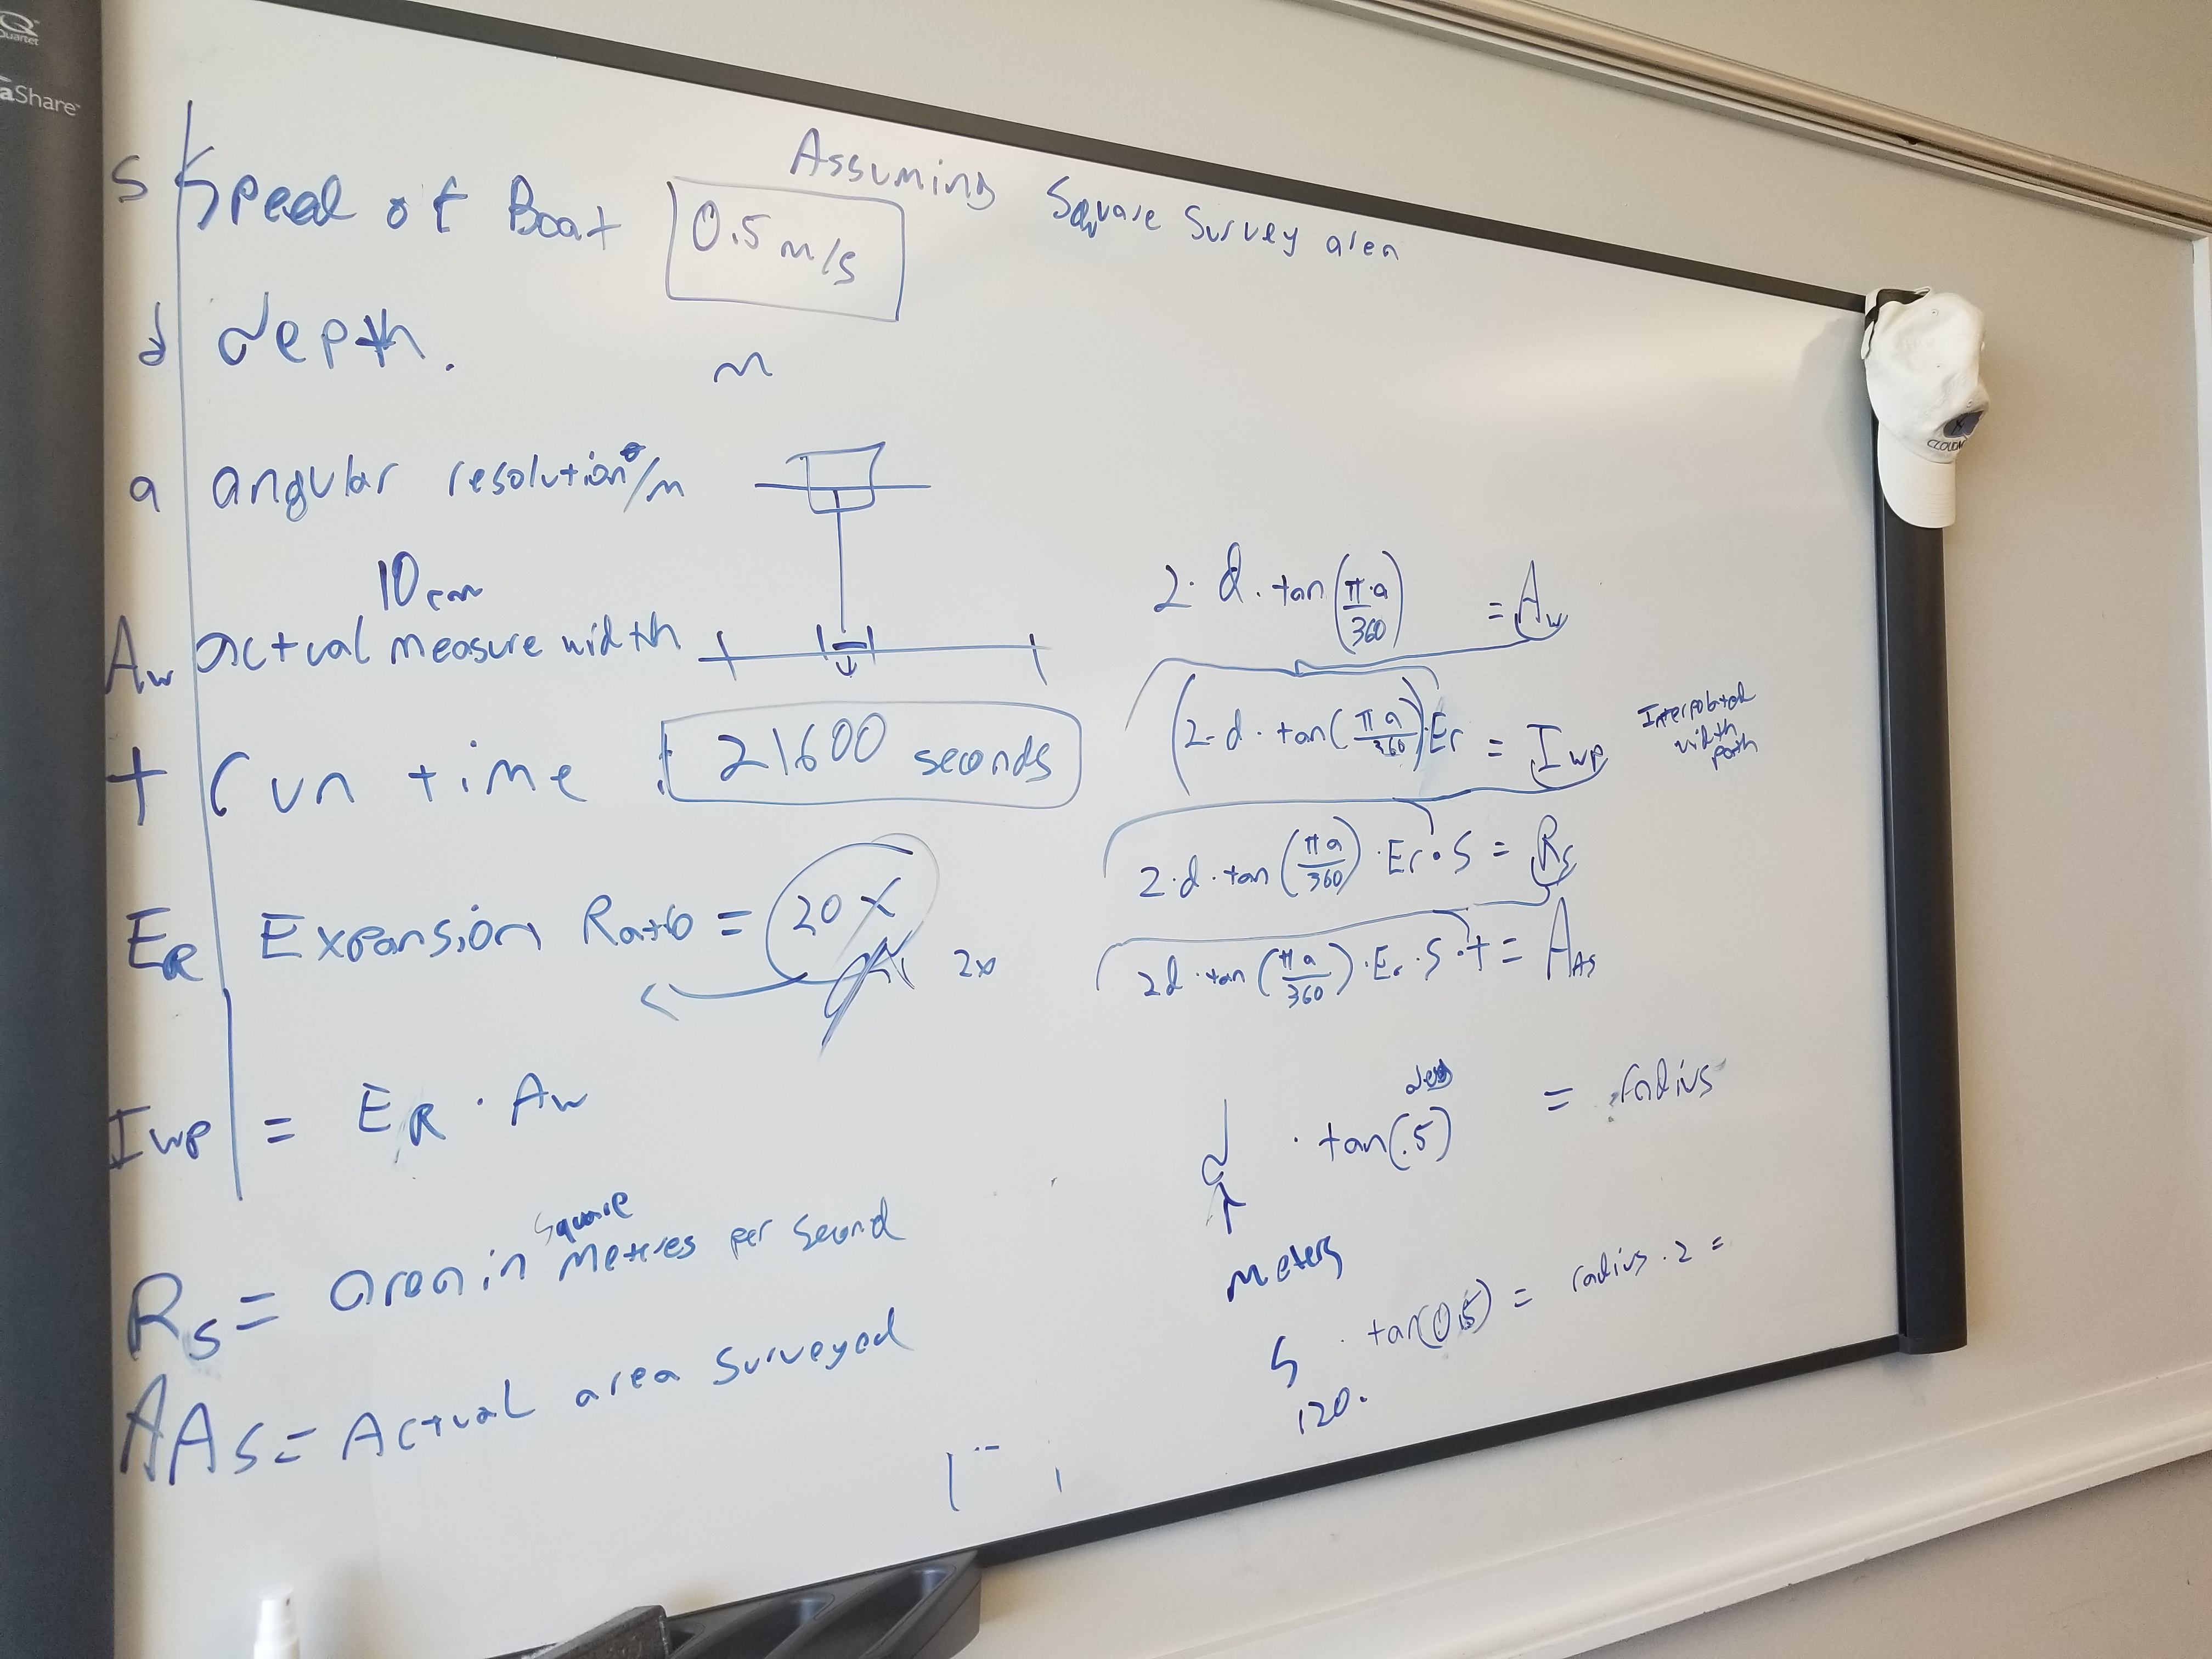 Quartet
aShare
Assuming Square Survey area
S Speed of Boat 0.5 m/s
d depth. m
a angular resolution °/m
10 cm
Aw actual measure width
t run time : 21600 seconds
ER Expansion Ratio = 20 x
2x
Iwp = ER · Aw
Rs = area in square Metres per second
AAs = Actual area surveyed
2· d · tan(π·a/360) = Aw
(2·d · tan(πa/360))·Er = Iwp Interpolated width path
2·d·tan(πa/360)·Er·S = Rs
2d·tan(πa/360)·Er·S·t = AAs
d · tan(.5) = radius
meters
5 · tan(0.5) = radius · 2 =
120.
CLOUD